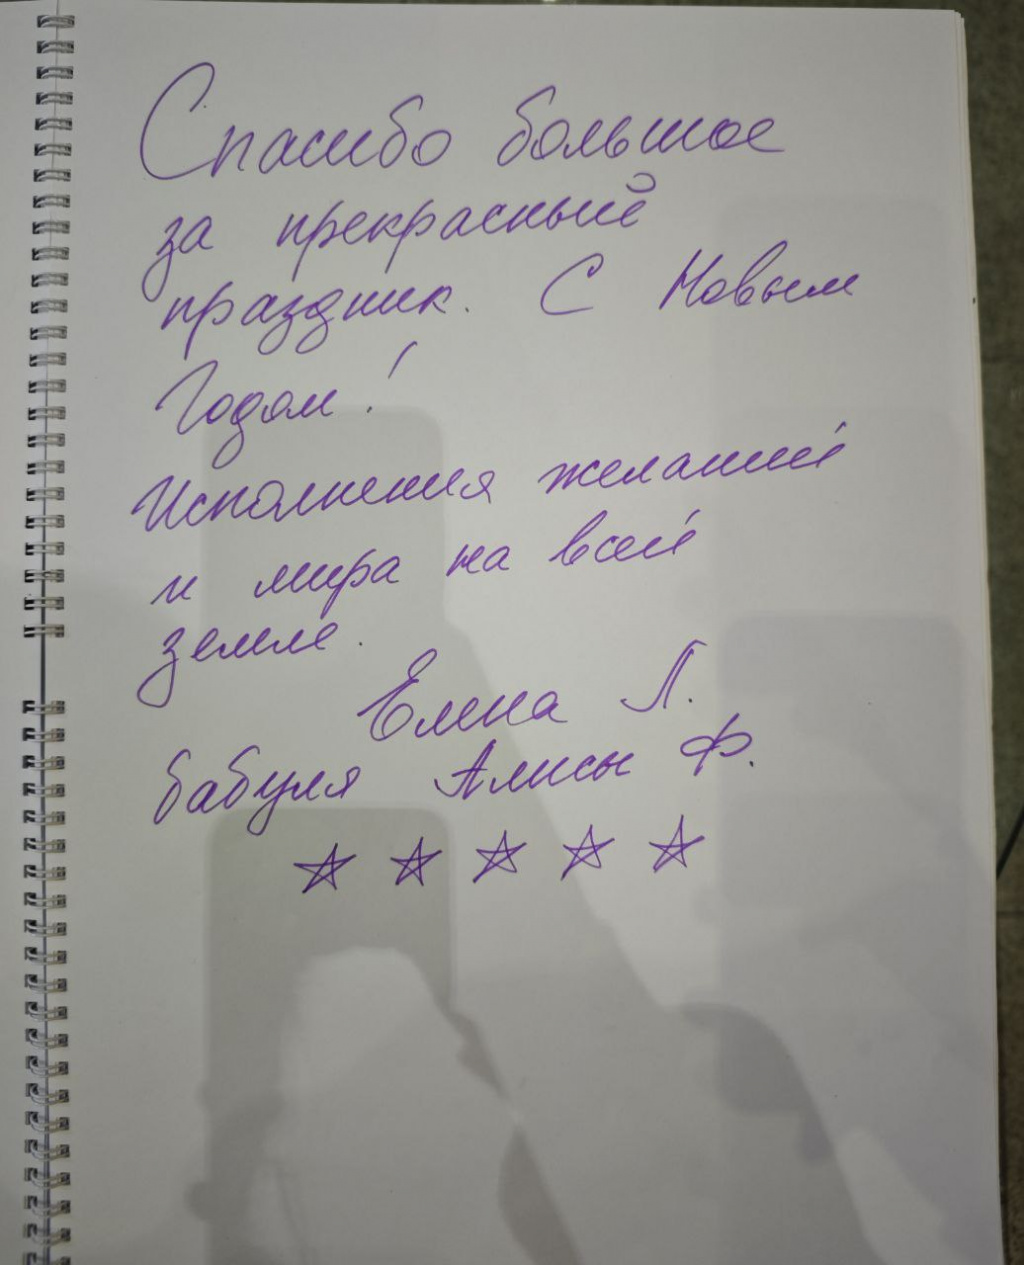 Спасибо большое
за прекрасный
праздник. С Новым
Годом!
Исполнения желаний
и мира на всей
земле.
Елена Л.
бабуля Алисы Ф.